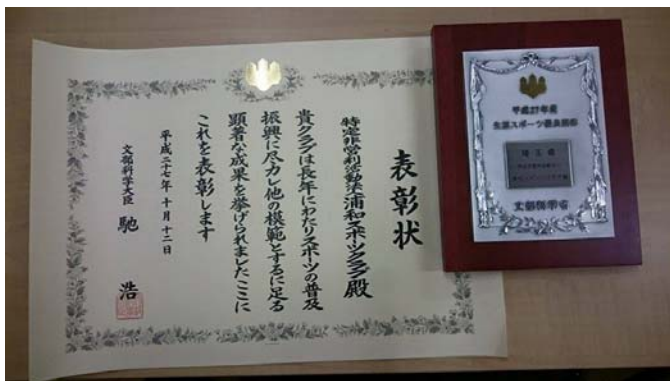 表彰状
特定非営利活動法人浦和スポーツクラブ殿
貴クラブは長年にわたりスポーツの普及
振興に尽力し他の模範とするに足る
顕著な成果を挙げられましたここに
これを表彰します
平成二十七年十月十二日
文部科学大臣 馳 浩
平成27年度
生涯スポーツ優良団体
埼玉県
文部科学省